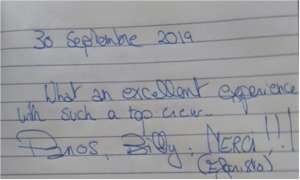 30 Septembre 2019
What an excellent experience
with such a top crew.
Billy. MERCI !!!